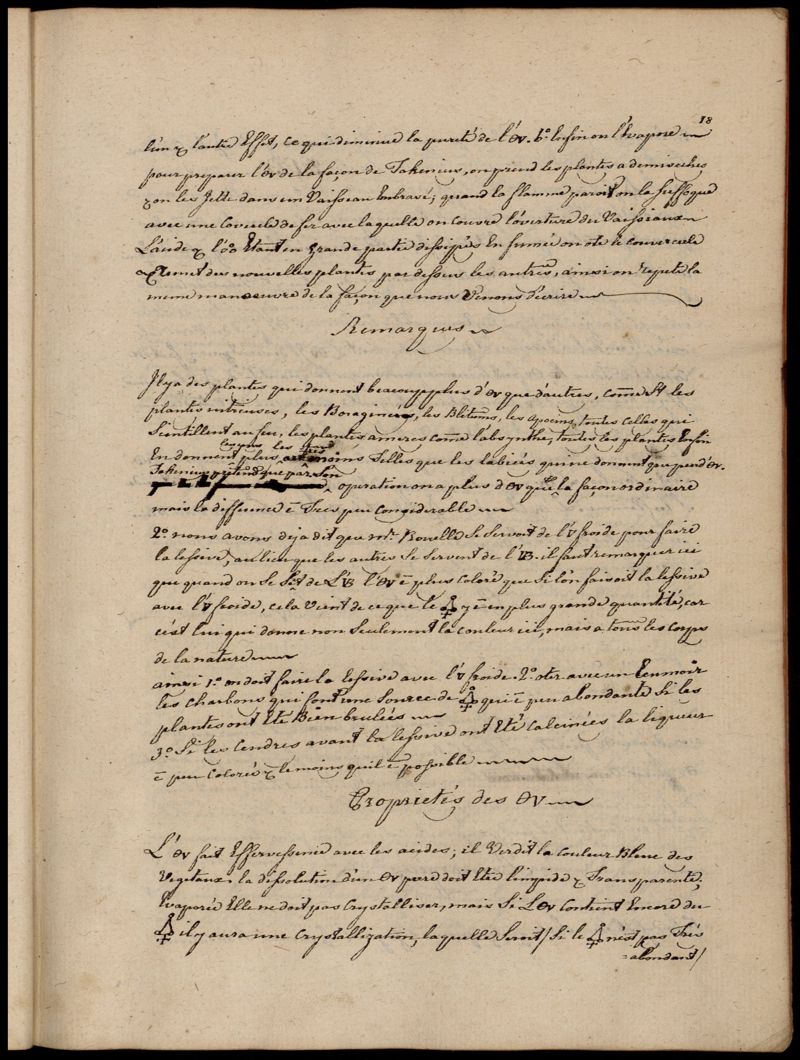 18
l'un & l'autre Effet, ce qui diminue la pureté de l'θv. 6.° Enfin on l'Evapore
pour preparer l'θv de la façon de Takenius, on prend les plantes a demi seches
& on les Jette dans un Vaisseau Embrasé, quand la flamme paroit on la suffoque
avec une Couvercle de fer avec laquelle on couvre l'ouverture du Vaisseaux
L'acide & l'oo Etant en Grande partie dissipés En fumée on ote le couvercule
& on met des nouvelles plantes par dessus les autres, ainsi on repete la
meme manœuvre de la façon que nous Venons d'ecrire
Remarques
Il y a des plantes qui donnent beaucoup plus d'θv que d'autres, come st les
plantes nitreuses, les Boraginées, les Blétums, les apocins, toutes celles qui
Scintillent au feu, les plantes ameres come l'absynthe, toutes les plantes Enfin
En donnent plus moins Telles que les labiées qui ne donnent que peu d'θv.
Takenius pretend que par son
operation on a plus d'θv que la façon ordinaire
mais la difference ē Tres peu considerable
2.° nous avons deja dit que mr. Rouelle se servoit de l'v froide pour faire
la lessive, au lieu que les autres se servent de l'vB. il faut remarquer ici
que quand on se st de L'vB l'θv ē plus coloré que si l'on faisoit la lessive
avec l'v froide, cela vient de ce que le 🜍 y ē en plus grande quantité, car
c'est lui qui donne non seulement la couleur ici, mais a tous les corps
de la nature
ainsi 1.° on doit faire la lessive avec l'v froide. 2.° oter avec un Ecumoir
les charbons qui sont une source de 🜍 qui ē peu abondante si les
plantes ont Eté Bien brulées
3.° Si les Cendres avant la lessive ont Eté Calcinées la liqueur
ē peu colorée & le moins qu'il ē possible
Proprietés des θv
L'θv fait Effervessence avec les acides; il Verdit la couleur Bleue des
Vegetaux. la dissolution d'un θv pur doit Etre limpide & Transparente,
Evaporée Elle ne doit pas Crystalliser, mais si L'θv Contient Encore du
🜍 il y aura une Crystallization, laquelle seroit/ si le 🜍 n'est pas Tres
=abondant/